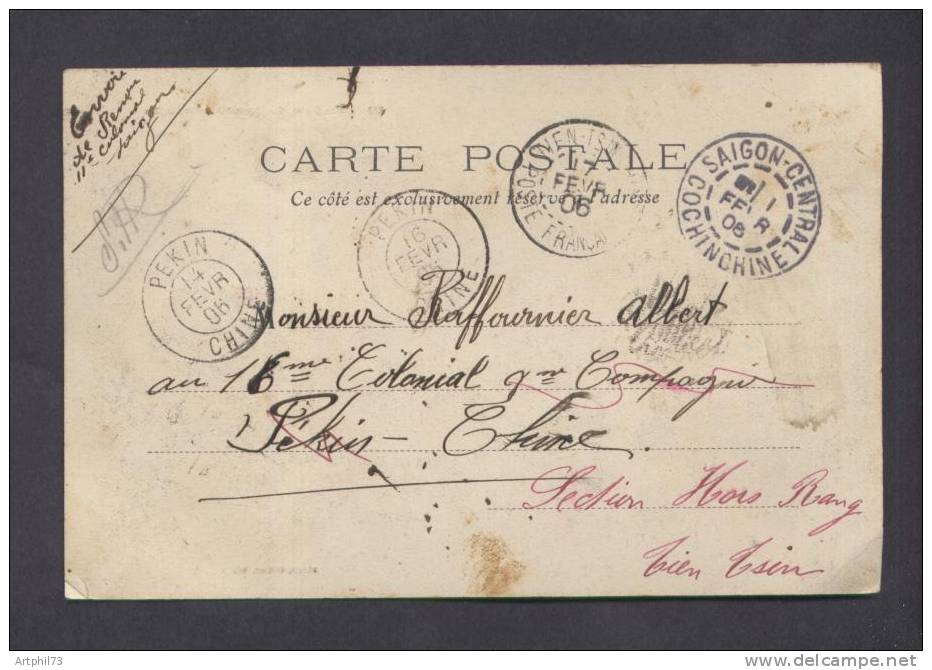 Envoi
de
11e Colonial
Saigon
CARTE POSTALE
Ce côté est exclusivement réservé à l'adresse
PEKIN
14
FEVR
06
CHINE
PEKIN
16
FEVR
CHINE
TIEN-TSIN
17
FEVR
06
POSTE FRANÇAISE
SAIGON-CENTRAL
1
FEVR
06
COCHINCHINE
SHR
Monsieur Raffournier Albert
au 16eme Colonial 9me Compagnie
Pékin - Chine
Section Hors Rang
Tien Tsin
Artphil73
www.delcampe.net